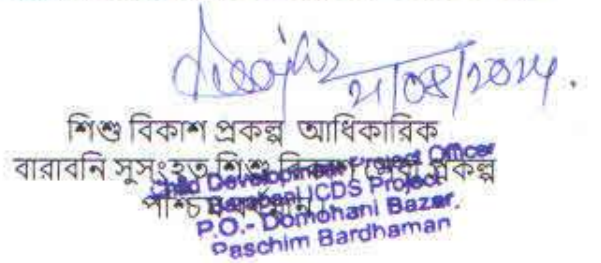 21/08/2024.
শিশু বিকাশ প্রকল্প আধিকারিক
বারাবনি সুসংহত শিশু বিকাশ সেবা প্রকল্প
পশ্চিম বর্ধমান।
Child Development Project Officer
Barabani ICDS Project
P.O.- Domohani Bazar.
Paschim Bardhaman